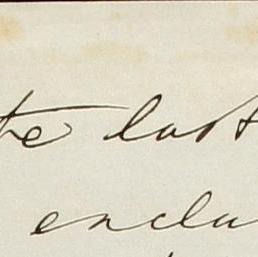 the last
enclu